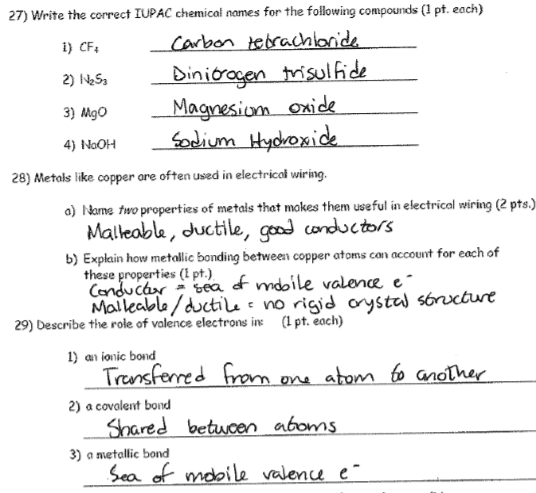 27) Write the correct IUPAC chemical names for the following compounds (1 pt. each)
1) CF₄ Carbon tetrachloride
2) N₂S₃ Dinitrogen trisulfide
3) MgO Magnesium oxide
4) NaOH Sodium Hydroxide
28) Metals like copper are often used in electrical wiring.
a) Name two properties of metals that makes them useful in electrical wiring (2 pts.)
Malleable, ductile, good conductors
b) Explain how metallic bonding between copper atoms can account for each of
these properties (1 pt.)
Conductor = sea of mobile valence e⁻
Malleable/ductile = no rigid crystal structure
29) Describe the role of valence electrons in: (1 pt. each)
1) an ionic bond
Transferred from one atom to another
2) a covalent bond
Shared between atoms
3) a metallic bond
Sea of mobile valence e⁻